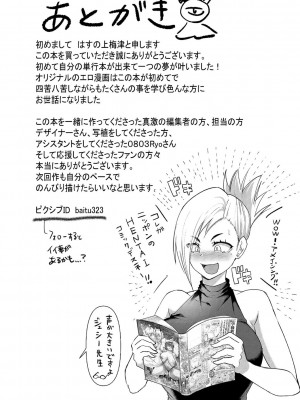 あとがき
初めまして　はすの上梅津と申します
この本を買っていただき誠にありがとうございます。
初めて自分の単行本が出来て一つの夢が叶いました！
オリジナルのエロ漫画はこの本が初めてで
四苦八苦しながらもたくさんの事を学び色んな方に
お世話になりました
この本を一緒に作ってくださった真激の編集者の方、担当の方
デザイナーさん、写植をしてくださった方、
アシスタントをしてくださった0803Ryoさん
そして応援してくださったファンの方々
本当にありがとうございます。
次回作も自分のペースで
のんびり描けたらいいなと思います。
ピクシブID　baitu323
フォローすると
イイ事が
あるかも…？
WOW！アメイジング！
コレが
ニッポンの
HENTAI
コミックデスネー！
ドキ
ドキ
声が大きいですよ
ジェシー先生